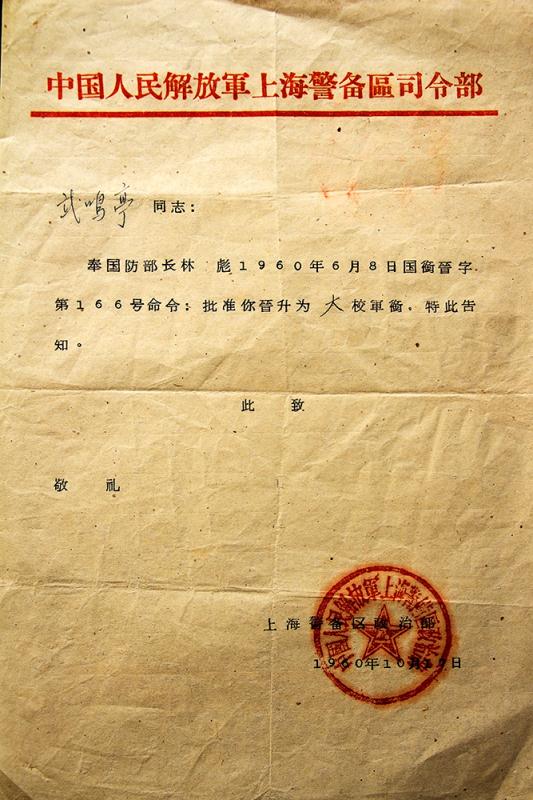 中国人民解放軍上海警备區司令部
武鳴亭 同志：
奉国防部长林 彪1960年6月8日国衔晉字
第166号命令：批准你晉升为大校軍衔。特此告
知。
此 致
敬 礼
上海警备区政治部
1960年10月17日